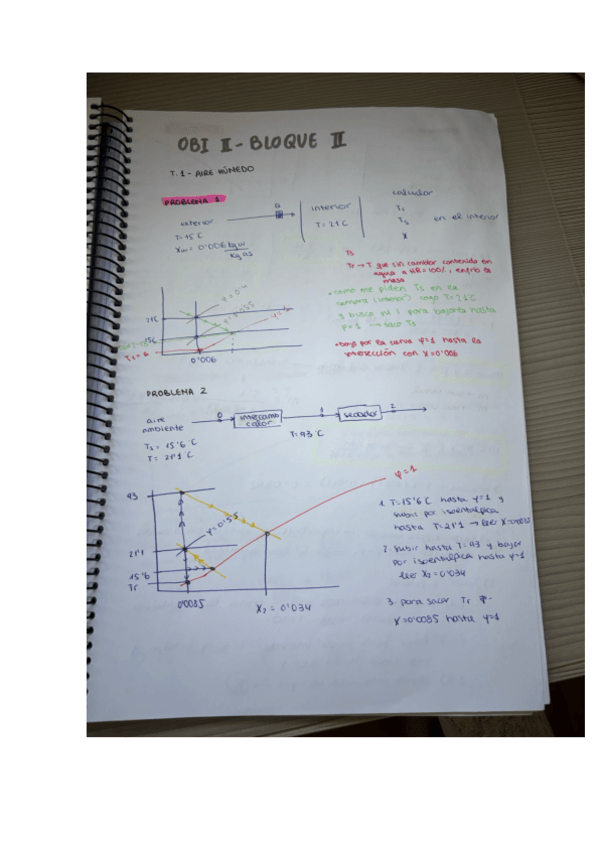 OBI II - BLOQUE II
T.1 - AIRE HÚMEDO
PROBLEMA 1
exterior
T = 15°C
Xw = 0'006 kg w
kg as
0
interior
T = 21°C
calcular
Ts
X
en el interior
Tr → T que sin cambiar contenido en
agua a HR=100%, enfrío la
masa
• como me piden Ts en la
camara (interior) cojo T=21°C
y busco pa l para bajarla hasta
φ=1 → saco Ts
• bajo por la curva φ=1 hasta la
intersección con X=0'006
φ=1
21°C
0'006
PROBLEMA 2
aire
ambiente
Ts = 15'6 °C
T = 21'1 °C
0
intercamb
calor
1
T=93°C
secador
2
93
21'1
15'6
Tr
φ=0'55
φ=1
0'0085
X2 = 0'034
1. T=15'6 C hasta φ=1 y
subir por isoentálpica
hasta T=21'1 → leer X=0'0085
2. subir hasta T=93 y bajar
por isoentálpica hasta φ=1
leer X2=0'034
3. para sacar Tr
X=0'0085 hasta φ=1